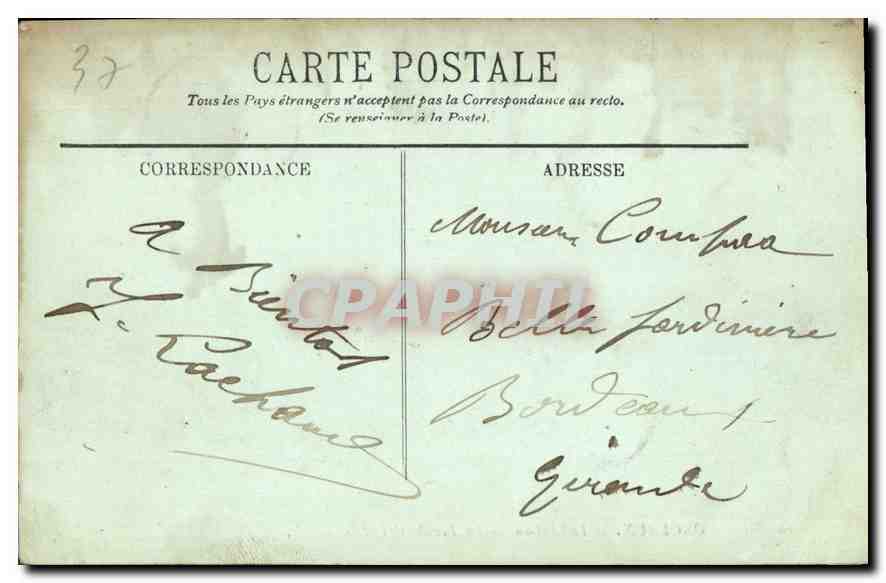 37
CARTE POSTALE
Tous les Pays étrangers n'acceptent pas la Correspondance au recto.
(Se renseigner à la Poste).
CORRESPONDANCE
ADRESSE
a Bientot
Monsieur
Belle Jardiniere
Bordeaux
Gironde
CPAPHIL